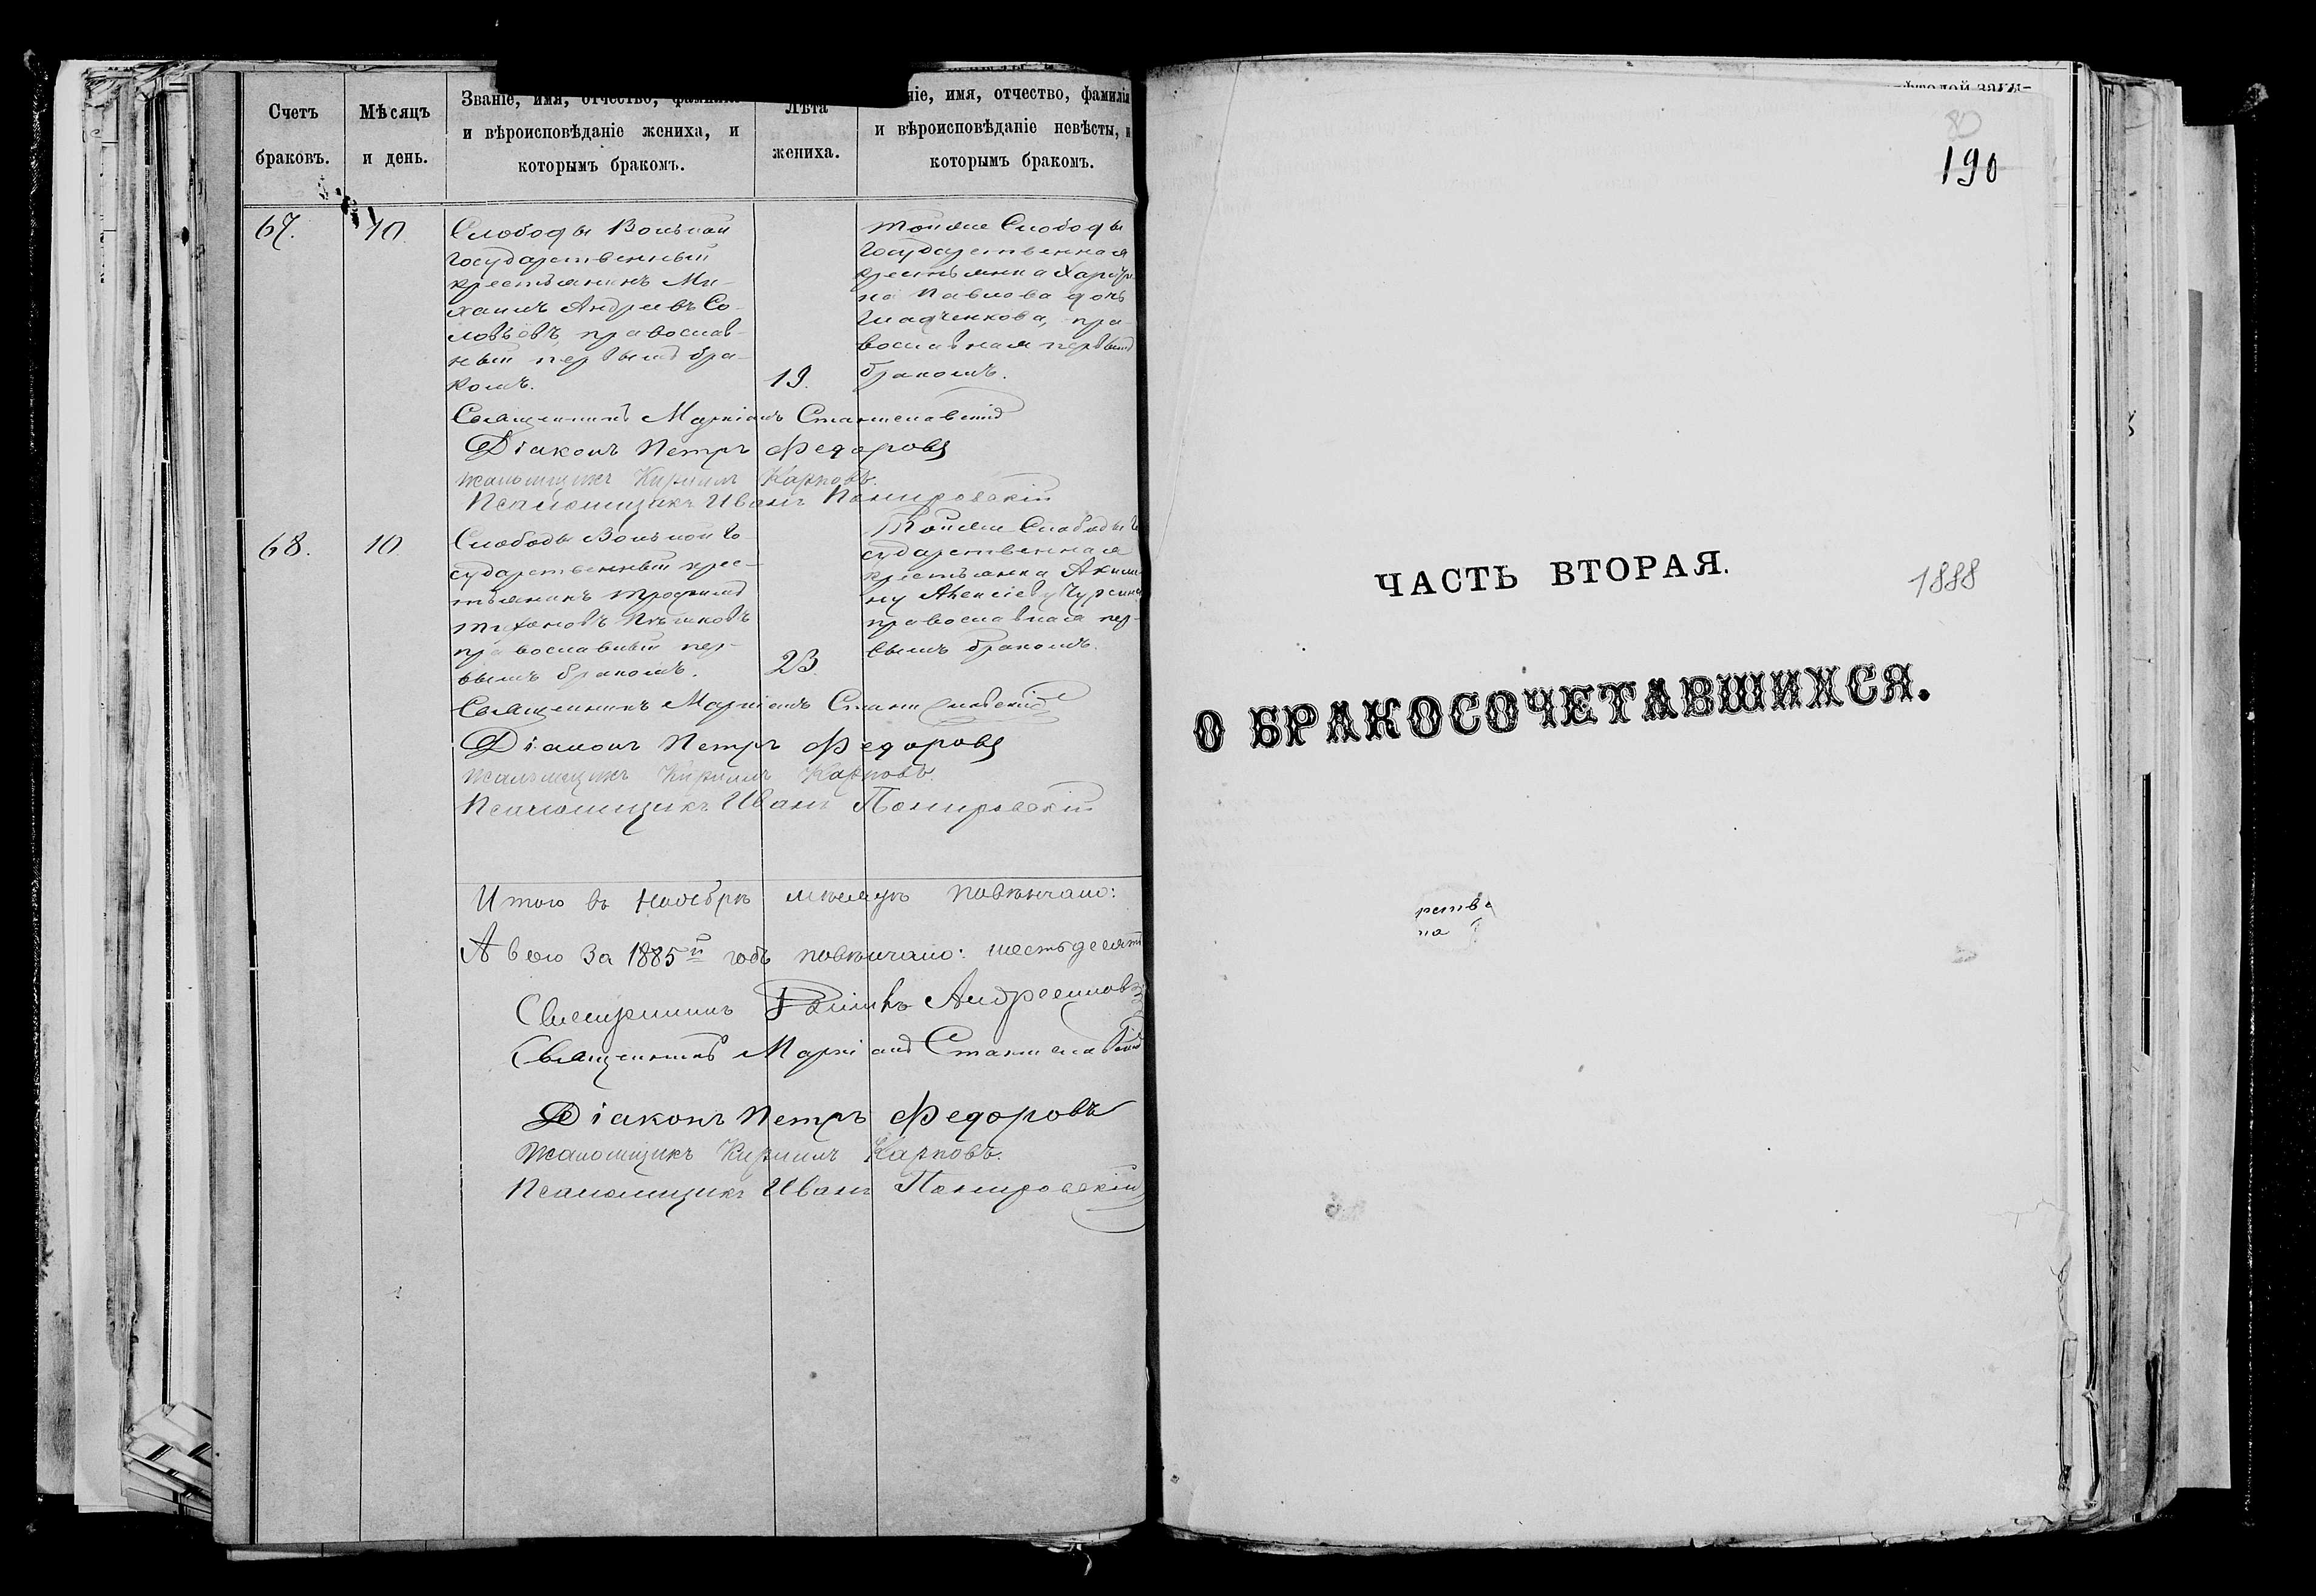 Счетъ
браковъ.
Мѣсяцъ
и день.
Званіе, имя, отчество,
и вѣроисповѣданіе жениха, и
которымъ бракомъ.
Лѣта
жениха.
ніе, имя, отчество, фамилія
и вѣроисповѣданіе невѣсты, и
которымъ бракомъ.
67.
10.
Слободы Вольной
Государственный
крестьянинъ Ми-
хаилъ Андреевъ Со-
ловьевъ, православ-
ный первымъ бра-
комъ.
19.
тойже Слободы
Государственная
крестьянка
на Павлова дочь
Гладченкова, пра-
вославная первымъ
бракомъ.
Священникъ Маркіанъ Станиславскій
Діаконъ Петръ Федоровъ
Псаломщикъ Кириллъ Карповъ.
Псаломщикъ Иванъ
68.
10
Слободы Вольной Го-
сударственный крес-
тьянинъ Трофимъ
Тихоновъ
православный пер-
вымъ бракомъ.
23.
Тойже Слободы Го
сударственная
крестьянка Акили-
православная пер-
вымъ бракомъ.
Священникъ Маркіанъ Станиславскій
Діаконъ Петръ Федоровъ
Псаломщикъ Кириллъ Карповъ.
Псаломщикъ Иванъ
Итого въ Ноябрѣ мѣсяцѣ повѣнчано:
А всего за 1885й годъ повѣнчано: шестьдесят
Священникъ
Священникъ Маркіанъ Станиславскій
Діаконъ Петръ Федоровъ
Псаломщикъ Кириллъ Карповъ.
Псаломщикъ Иванъ
80
190
ЧАСТЬ ВТОРАЯ.
1888
О БРАКОСОЧЕТАВШИХСЯ.